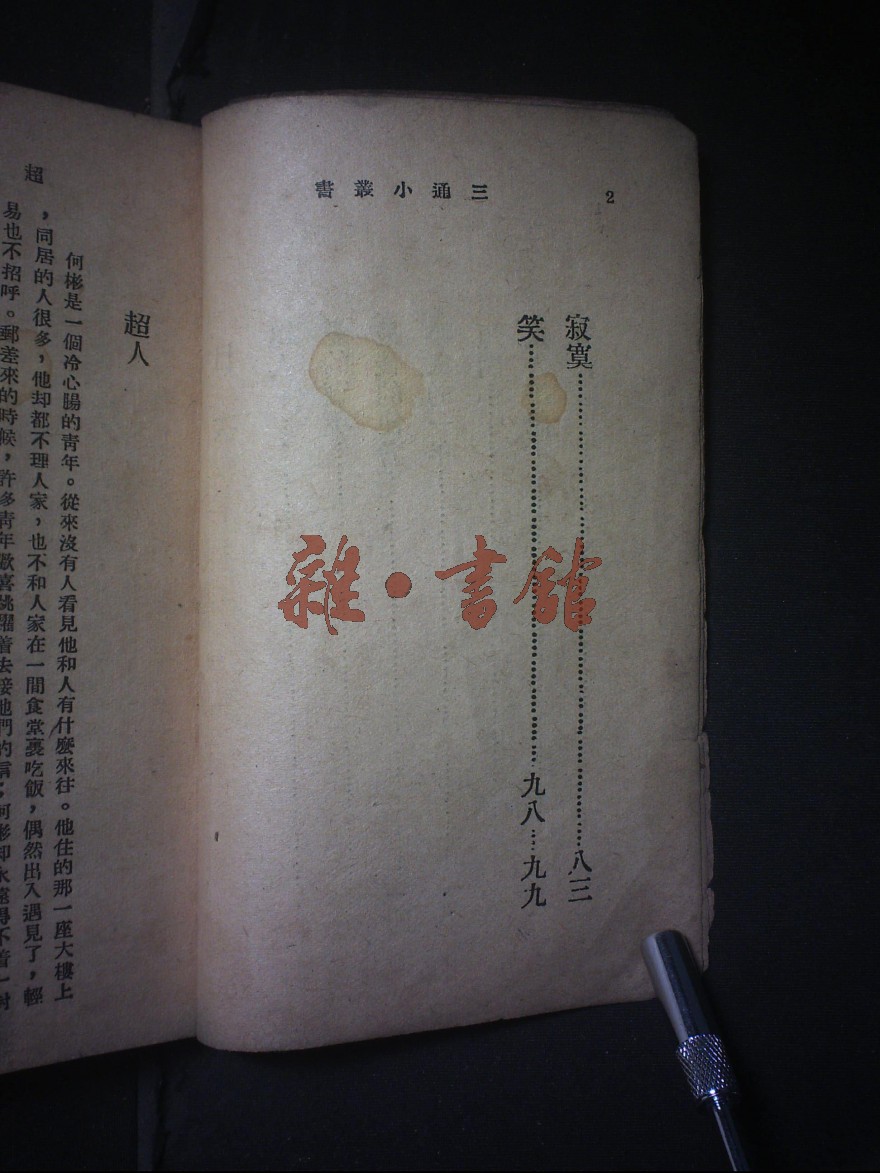 2
三通小叢書
寂寞……八三
笑……九八…九九
雜·書館
超人
何彬是一個冷心腸的青年。從來沒有人看見他和人有什麼來往。他住的那一座大樓上
，同居的人很多，他却都不理人家，也不和人家在一間食堂裏吃飯，偶然出入遇見了，輕
易也不招呼。郵差來的時候，許多青年歡喜跳躍着去接他們的信，何彬却永遠得不着一封
超